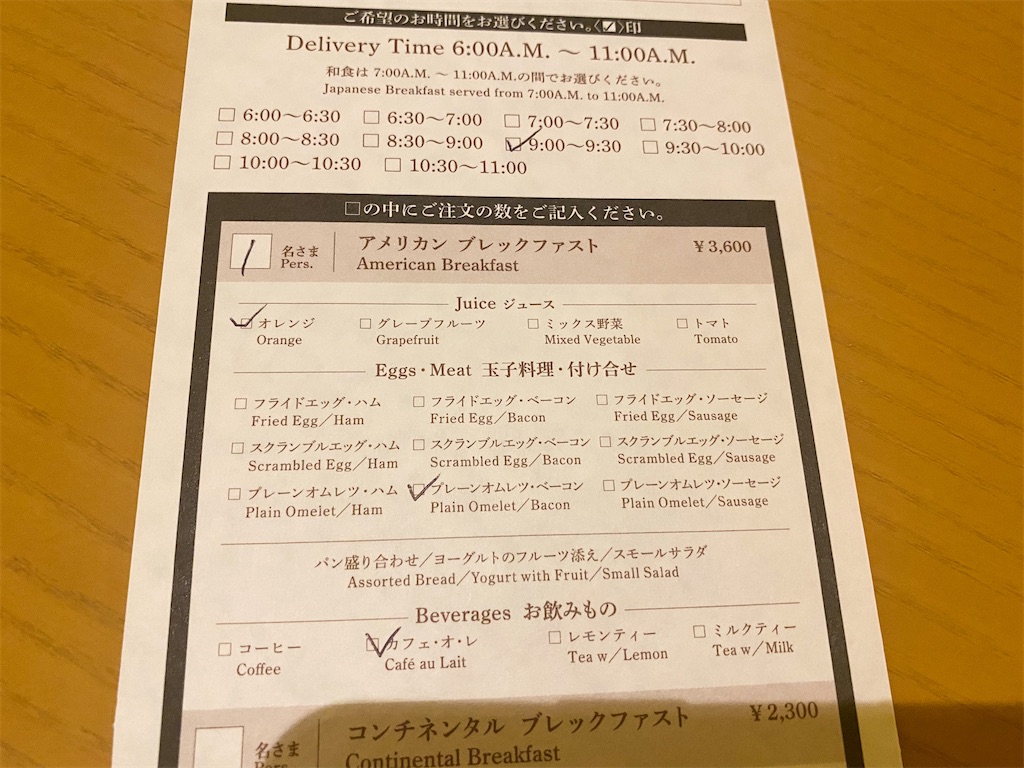 ご希望のお時間をお選びください。〈☑〉印
Delivery Time 6:00A.M. ～ 11:00A.M.
和食は 7:00A.M. ～ 11:00A.M.の間でお選びください。
Japanese Breakfast served from 7:00A.M. to 11:00A.M.
□ 6:00～6:30 □ 6:30～7:00 □ 7:00～7:30 □ 7:30～8:00
□ 8:00～8:30 □ 8:30～9:00 ☑ 9:00～9:30 □ 9:30～10:00
□ 10:00～10:30 □ 10:30～11:00
□の中にご注文の数をご記入ください。
1 名さま アメリカン ブレックファスト ¥3,600
Pers. American Breakfast
Juice ジュース
☑ オレンジ □ グレープフルーツ □ ミックス野菜 □ トマト
Orange Grapefruit Mixed Vegetable Tomato
Eggs・Meat 玉子料理・付け合せ
□ フライドエッグ・ハム □ フライドエッグ・ベーコン □ フライドエッグ・ソーセージ
Fried Egg／Ham Fried Egg／Bacon Fried Egg／Sausage
□ スクランブルエッグ・ハム □ スクランブルエッグ・ベーコン □ スクランブルエッグ・ソーセージ
Scrambled Egg／Ham Scrambled Egg／Bacon Scrambled Egg／Sausage
□ プレーンオムレツ・ハム ☑ プレーンオムレツ・ベーコン □ プレーンオムレツ・ソーセージ
Plain Omelet／Ham Plain Omelet／Bacon Plain Omelet／Sausage
パン盛り合わせ／ヨーグルトのフルーツ添え／スモールサラダ
Assorted Bread／Yogurt with Fruit／Small Salad
Beverages お飲みもの
□ コーヒー ☑ カフェ・オ・レ □ レモンティー □ ミルクティー
Coffee Café au Lait Tea w／Lemon Tea w／Milk
□ 名さま コンチネンタル ブレックファスト ¥2,300
Pers. Continental Breakfast